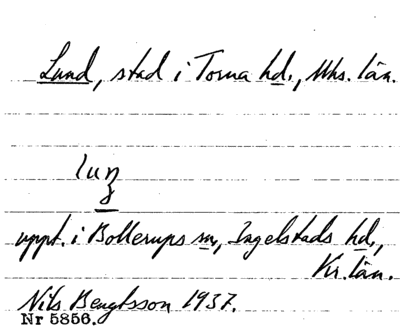 Lund, stad i Torna hd., Mhs. län.
lun̥
uppt. i Bollerups sn, Ingelstads hd.,
Kr. län.
Nils Bengtsson 1937.
Nr 5856.